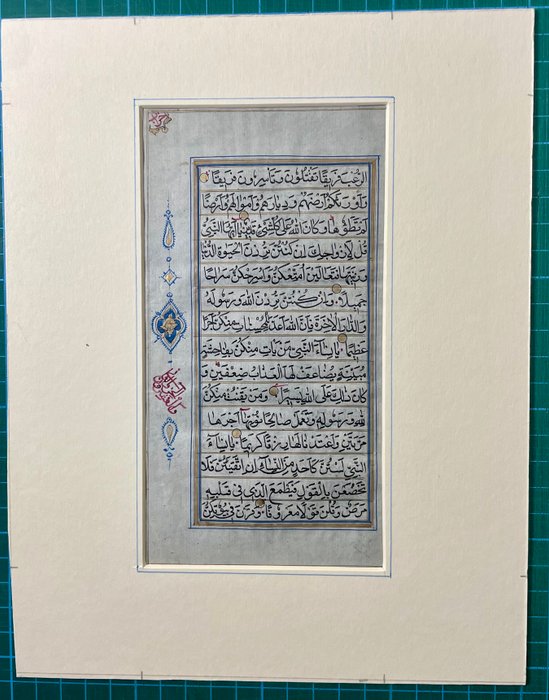 الرُّعْبَ فَرِيقًا تَقْتُلُونَ وَتَأْسِرُونَ فَرِيقًا
وَأَوْرَثَكُمْ أَرْضَهُمْ وَدِيَارَهُمْ وَأَمْوَالَهُمْ وَأَرْضًا
لَمْ تَطَئُوهَا وَكَانَ اللَّهُ عَلَى كُلِّ شَيْءٍ قَدِيرًا يَا أَيُّهَا النَّبِيُّ
قُلْ لِأَزْوَاجِكَ إِنْ كُنْتُنَّ تُرِدْنَ الْحَيٰوةَ الدُّنْيَا
وَزِينَتَهَا فَتَعَالَيْنَ أُمَتِّعْكُنَّ وَأُسَرِّحْكُنَّ سَرَاحًا
جَمِيلًا وَإِنْ كُنْتُنَّ تُرِدْنَ اللَّهَ وَرَسُولَهُ
وَالدَّارَ الْآخِرَةَ فَإِنَّ اللَّهَ أَعَدَّ لِلْمُحْسِنَاتِ مِنْكُنَّ أَجْرًا
عَظِيمًا يَا نِسَاءَ النَّبِيِّ مَنْ يَأْتِ مِنْكُنَّ بِفَاحِشَةٍ
مُبَيِّنَةٍ يُضَاعَفْ لَهَا الْعَذَابُ ضِعْفَيْنِ وَ
كَانَ ذَلِكَ عَلَى اللَّهِ يَسِيرًا وَمَنْ يَقْنُتْ مِنْكُنَّ
لِلَّهِ وَرَسُولِهِ وَتَعْمَلْ صَالِحًا نُؤْتِهَا أَجْرَهَا
مَرَّتَيْنِ وَأَعْتَدْنَا لَهَا رِزْقًا كَرِيمًا يَا نِسَاءَ
النَّبِيِّ لَسْتُنَّ كَأَحَدٍ مِنَ النِّسَاءِ إِنِ اتَّقَيْتُنَّ فَلَا
تَخْضَعْنَ بِالْقَوْلِ فَيَطْمَعَ الَّذِي فِي قَلْبِهِ
مَرَضٌ وَقُلْنَ قَوْلًا مَعْرُوفًا وَقَرْنَ فِي بُيُوتِكُنَّ